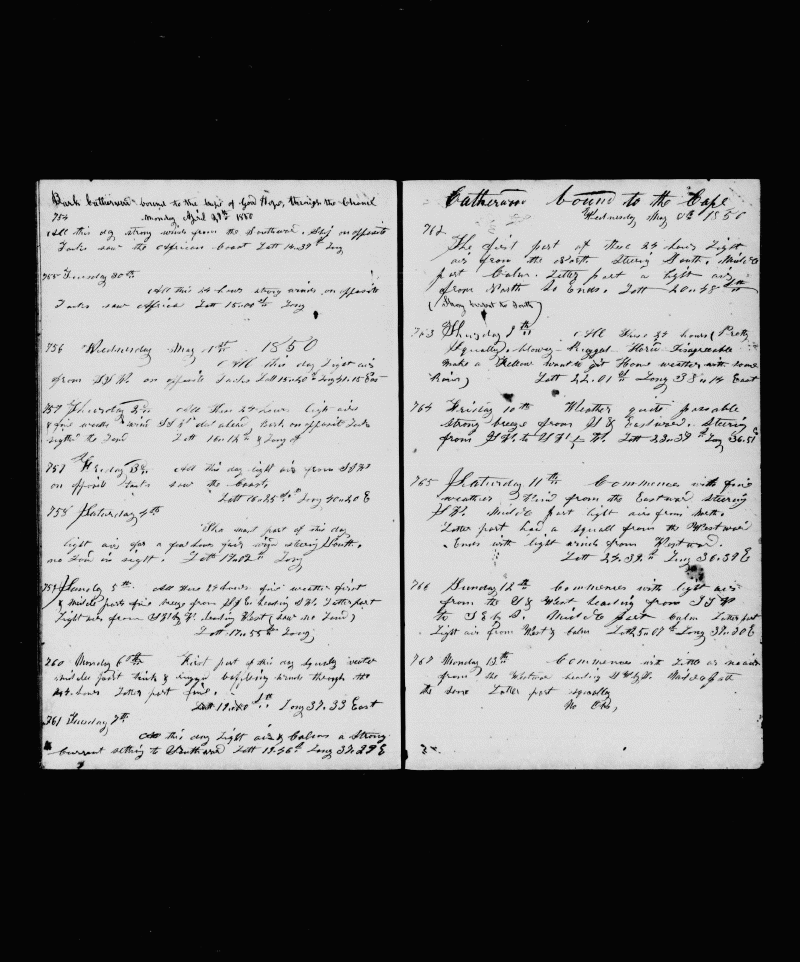 Bark Catherine bound to the Cape of Good Hope, through the Chanel
754 Monday April 29th 1850
All this day strong winds from the Southward. Ship on opposite
Tacks saw the African Coast Latt 14..39 Long
755 Tuesday 30th
All this 24 hours strong winds on opposite
Tacks saw Africa Latt 15..00 Long
756 Wednesday May 1th 1850
All this day Light air
from on opposite Tacks Latt 15..20 Long 41..15 East
757 Thursday 2 All these 24 hours light airs
& fine weather wind Bark on opposite Tacks
the Land Latt 16..14
757 Friday 3 All this day light air from
on opposite Tacks saw the Coast
Latt 16..25 Long 40..20 E
758 Saturday 4th
The most part of this day
light airs for a few hours wind steering South.
no Land in sight. Latt 17..02 Long
759 Sunday 5th All these 24 hours fine weather first
& middle parts fine breeze from heading Latter part
Light air from heading West (saw no Land)
Latt 17..55 Long
760 Monday 6th First part of this day squally weather
middle part thick & baffeling winds through the
24 hours Latter part fine.
Latt 19..00 Long 37..33 East
761 Tuesday 7th
All this day Light air & Calms a Strong
Current setting to Southward Latt 19..56 Long 37..29 E
Catherine bound to the Cape
Wednesday May 8th 1850
762
The first part of these 24 hours Light
air from the North. Steering South. Middle
part Calm. Latter part a light air
from North So Ends. Latt 20..48
(Strong Current to South)
763 Thursday 9th All these 24 hours (Pretty
Squally) blowy Rugged Disagreeable
make a Fellow want to get Home weather with some
Rain) Latt 22..01 Long 38..14 East
764 Friday 10th Weather quite passable
strong breeze from & Eastward. Steering
from to Latt 23..39 Long 36..51
765 Saturday 11th Commences with fine
weather Wind from the Eastward steering
Middle part light airs from North.
Latter part had a squall from the Westward
Ends with light winds from Westward.
Latt 24..39 Long 36..39 E
766 Sunday 12th Commences with light air
from the & West heading from
to Middle part Calm Latter part
Light air from West & calm Latt 25..07 Long 37..30 E
767 Monday 13th Commences with Little or no air
from the Westward heading Middle part
the same Latter part squally
No Obs,